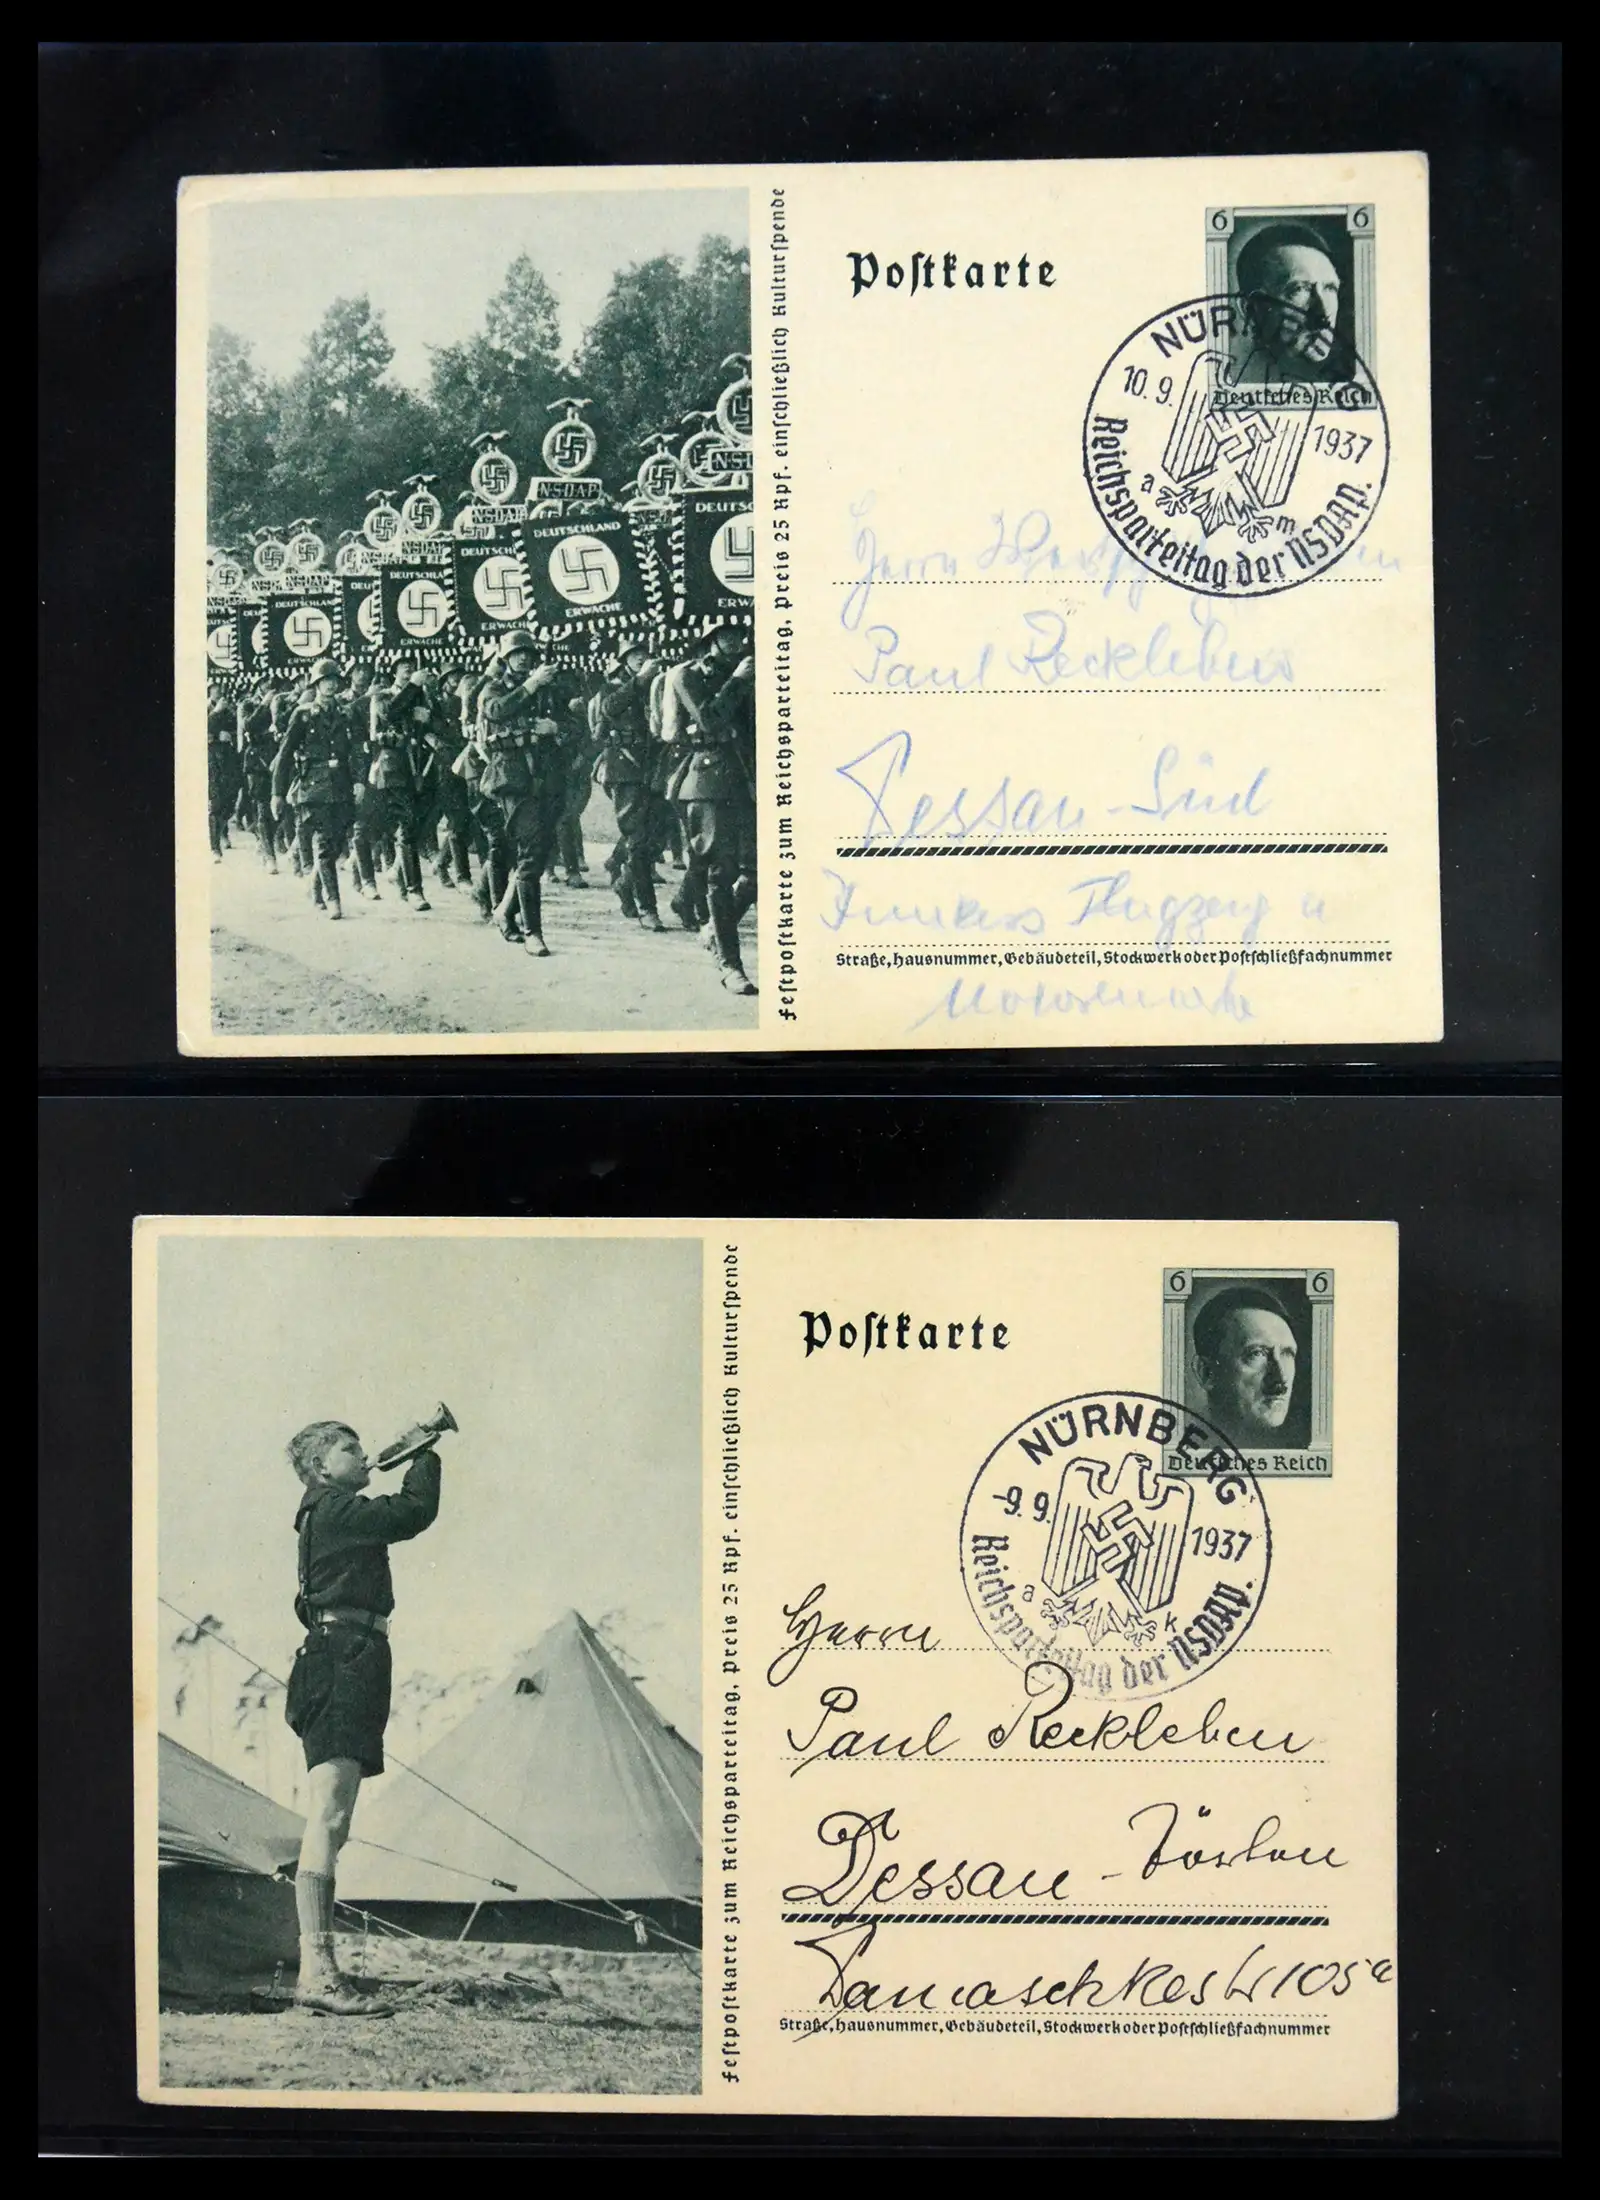 Postkarte
6 6
Deutsches Reich
NÜRNBERG
10.9. 1937
a m
Reichsparteitag der NSDAP.
NSDAP
DEUTSCHLAND
ERWACHE
Festpostkarte zum Reichsparteitag, Preis 25 Rpf. einschließlich Kulturspende
Herrn
Paul Reckleben
Dessau-Süd
Junkers Flugzeug u
Straße, Hausnummer, Gebäudeteil, Stockwerk oder Postschließfachnummer
Motorenwerke
Postkarte
6 6
Deutsches Reich
NÜRNBERG
-9.9. 1937
a k
Reichsparteitag der NSDAP.
Festpostkarte zum Reichsparteitag, Preis 25 Rpf. einschließlich Kulturspende
Herrn
Paul Reckleben
Dessau-Törten
Damaschkestr 105a
Straße, Hausnummer, Gebäudeteil, Stockwerk oder Postschließfachnummer